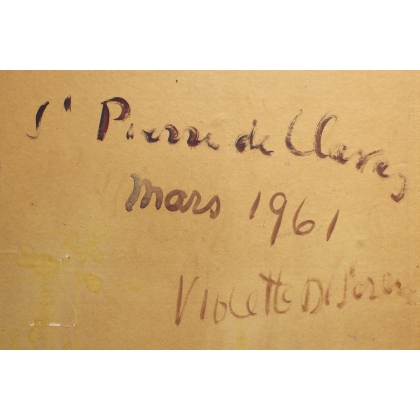 St Pierre de Clages
Mars 1961
Violette Diserens